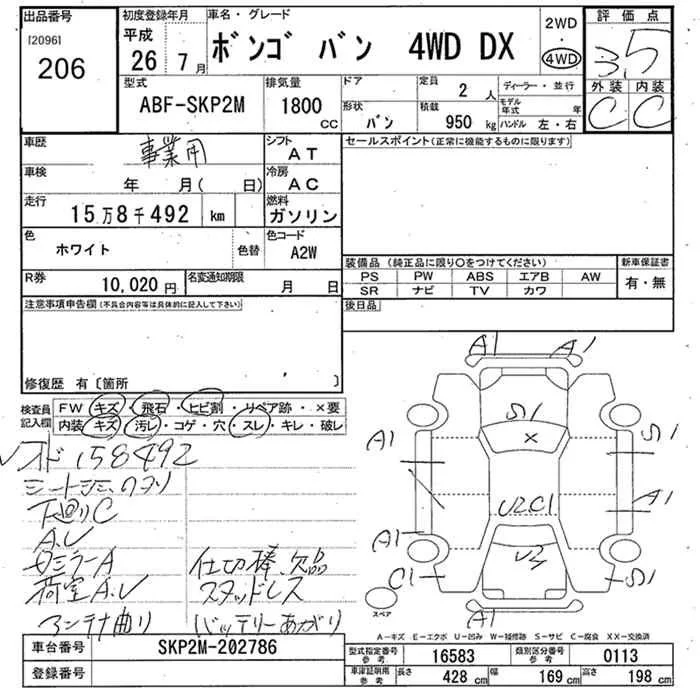 出品番号
[2096]
206
初度登録年月
平成
26年7月
車名・グレード
ボンゴ バン 4WD DX
2WD
・
4WD
評価点
3.5
外装 内装
C C
型式
ABF-SKP2M
排気量
1800
CC
ドア
形状
バン
定員
2人
積載
950 kg
ディーラー・並行
モデル年式 年
ハンドル 左・右
車歴
事業用
シフト
AT
車検
年 月( 日)
冷房
AC
走行
15万8千492 km
燃料
ガソリン
色
ホワイト
色替
色コード
A2W
R券
10,020円
名変通知期限
月 日
セールスポイント(正常に機能するものに限ります)
装備品 (純正品に限り○をつけてください)
新車保証書
有・無
PS PW ABS エアB AW
SR ナビ TV カワ
後日品
注意事項申告欄(不具合内容等は具体的に記入して下さい)
修復歴 有〔箇所 〕
検査員記入欄
FW キズ・飛石・ヒビ割・リペア跡・×要
内装 キズ・汚レ・コゲ・穴・スレ・キレ・破レ
158492
下廻りC
A.U
荷室A.U
アンテナ曲り
仕切棒、欠品
スタッドレス
バッテリーあがり
A1 A1
S1
A1 X S1
A1
U2C1
A1 U3
C1 S1
A1
スペア
A-キズ E-エクボ U-凹み W-補修跡 S-サビ C-腐食 XX-交換済
車台番号
SKP2M-202786
登録番号
型式指定番号 参考
16583
類別区分番号 参考
0113
車庫証明用 参考
長さ 428 cm
幅 169 cm
高さ 198 cm